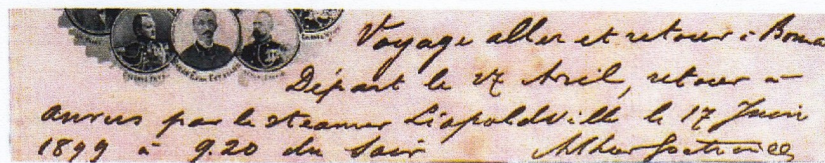 Voyage aller et retour à Boma
Départ le 27 Avril, retour à
Anvers par le steamer Léopoldville le 17 Juin
1899 à 9.20 du Soir